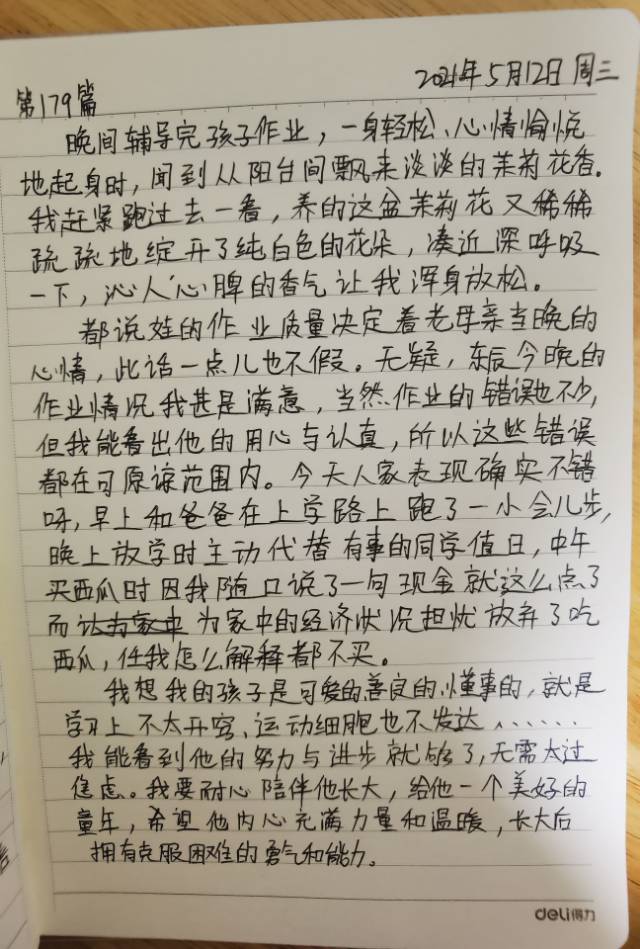 2021年5月12日 周三
第179篇
晚间辅导完孩子作业，一身轻松、心情愉悦
地起身时，闻到从阳台间飘来淡淡的茉莉花香。
我赶紧跑过去一看，养的这盆茉莉花又稀稀
疏疏地绽开了纯白色的花朵，凑近深呼吸
一下，沁人心脾的香气让我浑身放松。
都说娃的作业质量决定着老母亲当晚的
心情，此话一点儿也不假。无疑，东辰今晚的
作业情况我甚是满意，当然作业的错误也不少，
但我能看出他的用心与认真，所以这些错误
都在可原谅范围内。今天人家表现确实不错
呀，早上和爸爸在上学路上跑了一小会儿步，
晚上放学时主动代替有事的同学值日，中午
买西瓜时因我随口说了一句现金就这么点了
而为家中的经济状况担忧放弃了吃
西瓜，任我怎么解释都不买。
我想我的孩子是可爱的善良的懂事的，就是
学习上不太开窍、运动细胞也不发达……
我能看到他的努力与进步就够了，无需太过
焦虑。我要耐心陪伴他长大，给他一个美好的
童年，希望他内心充满力量和温暖，长大后
拥有克服困难的勇气和能力。
deli得力